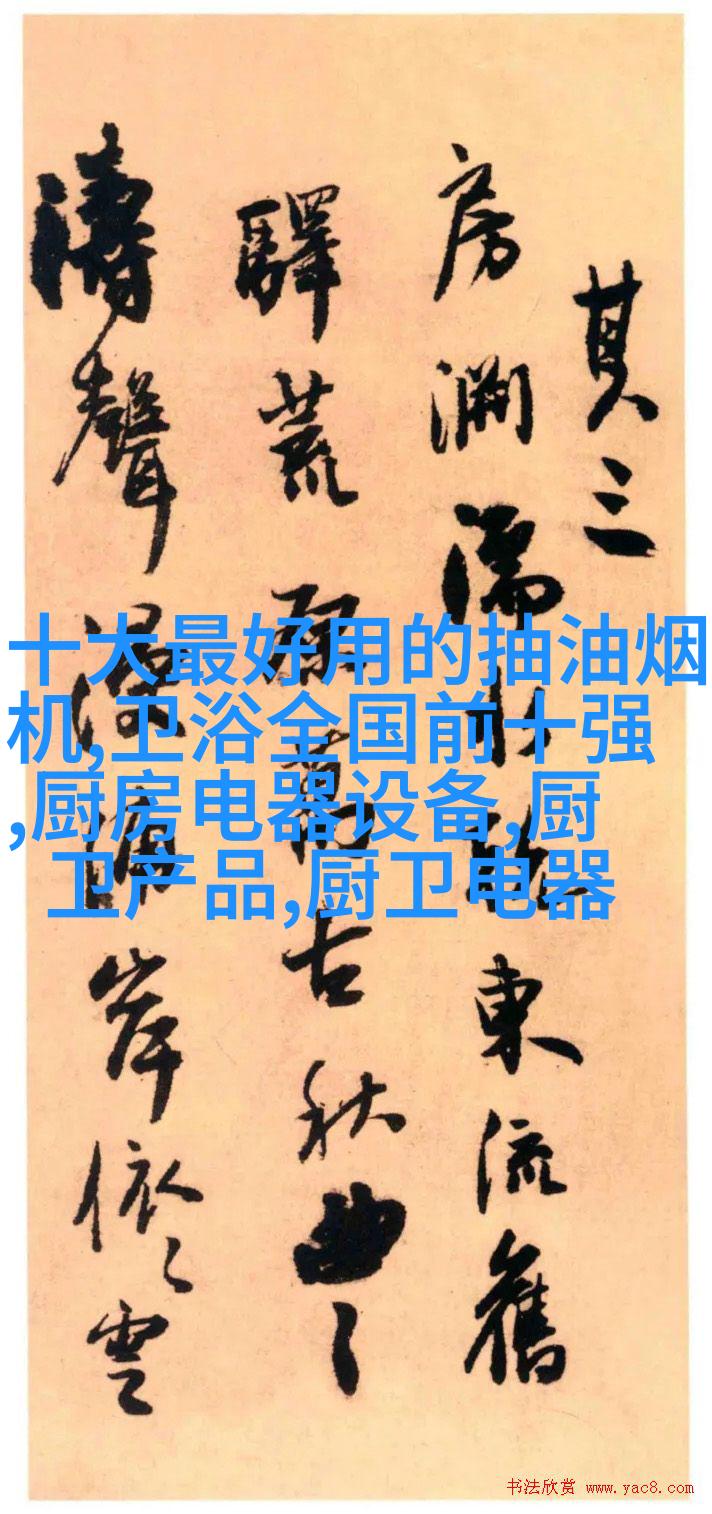 其三
房濡水東流舊
驛荒古秋曲〻
濤聲漫岸依〻雲
十大最好用的抽油烟
机,卫浴全国前十强
,厨房电器设备,厨
卫产品,厨卫电器
书法欣赏 www.yac8.com